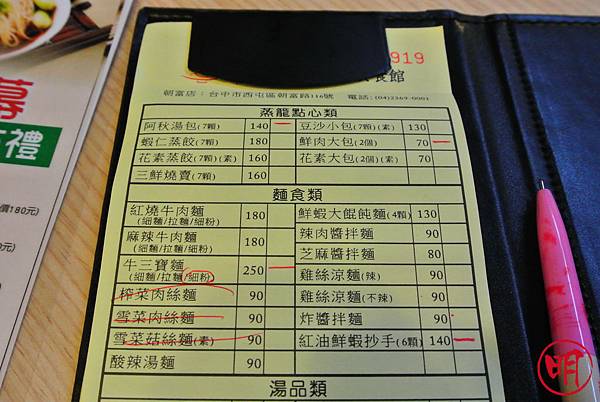 919
食館
朝富店：台中市西屯區朝富路116號 電話：(04)2369-0001
蒸籠點心類
阿秋湯包(7顆) 140 豆沙小包(7顆)(素) 130
蝦仁蒸餃(7顆) 180 鮮肉大包(2個) 70
花素蒸餃(7顆)(素) 160 花素大包(2個)(素) 70
三鮮燒賣(7顆) 160
麵食類
紅燒牛肉麵 (細麵/拉麵/細粉) 180 鮮蝦大餛飩麵(4顆) 130
麻辣牛肉麵 (細麵/拉麵/細粉) 180 辣肉醬拌麵 90
芝麻醬拌麵 80
牛三寶麵 (細麵/拉麵/細粉) 250 雞絲涼麵(辣) 90
榨菜肉絲麵 90 雞絲涼麵(不辣) 90
雪菜肉絲麵 90 炸醬拌麵 90
雪菜菇絲麵(素) 90 紅油鮮蝦抄手(6顆) 140
酸辣湯麵 90
湯品類
禮
價180元)
0元)
明